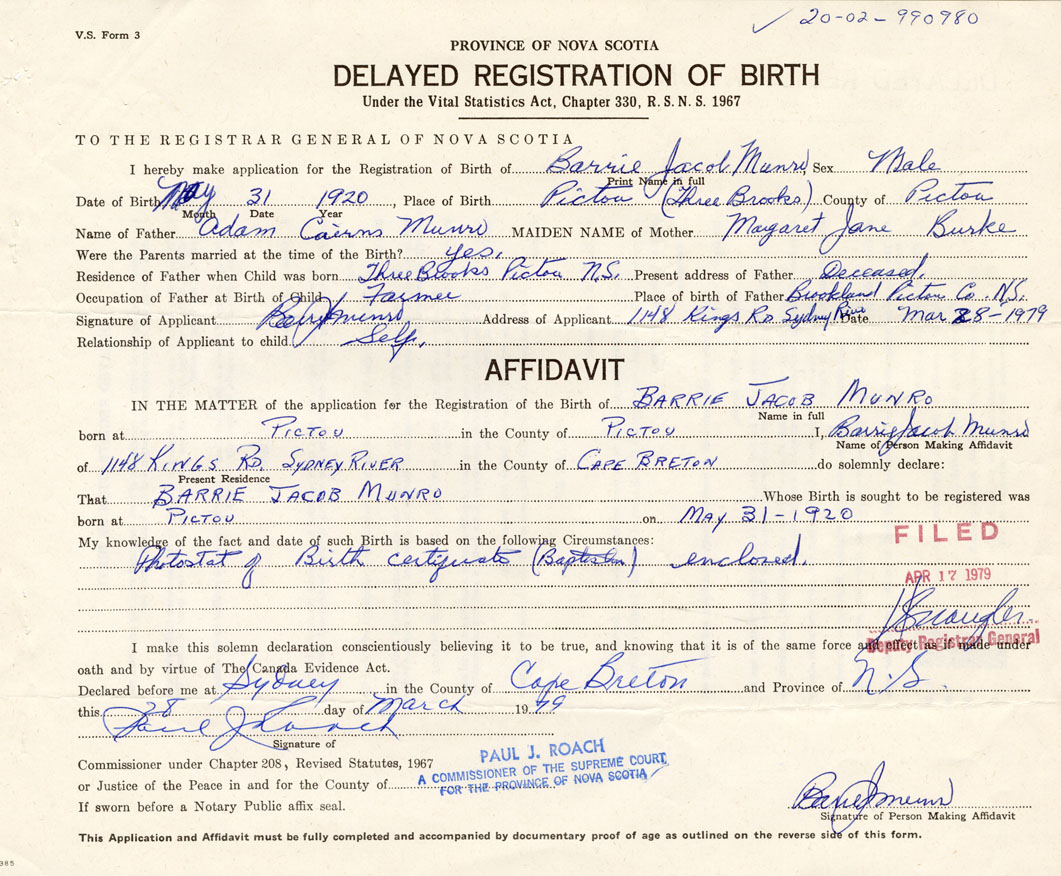 ✓ 20-02-990980
V.S. Form 3
PROVINCE OF NOVA SCOTIA
DELAYED REGISTRATION OF BIRTH
Under the Vital Statistics Act, Chapter 330, R.S.N.S. 1967
TO THE REGISTRAR GENERAL OF NOVA SCOTIA
I hereby make application for the Registration of Birth of Barrie Jacob Munro, Sex Male
Print Name in full
Date of Birth May 31 1920, Place of Birth Pictou (Three Brooks) County of Pictou
Month Date Year
Name of Father Adam Cairns Munro MAIDEN NAME of Mother Margaret Jane Burke
Were the Parents married at the time of the Birth? yes.
Residence of Father when Child was born Three Brooks Pictou N.S. Present address of Father Deceased.
Occupation of Father at Birth of Child Farmer Place of birth of Father Brookland Pictou Co. N.S.
Signature of Applicant Barrie J Munro Address of Applicant 1148 Kings Rd Sydney River Date Mar 28-1979
Relationship of Applicant to child Self.
AFFIDAVIT
IN THE MATTER of the application for the Registration of the Birth of BARRIE JACOB MUNRO
Name in full
born at PICTOU in the County of PICTOU I, Barrie Jacob Munro
Name of Person Making Affidavit
of 1148 KINGS RD. SYDNEY RIVER in the County of CAPE BRETON do solemnly declare:
Present Residence
That BARRIE JACOB MUNRO Whose Birth is sought to be registered was
born at PICTOU on MAY 31-1920
My knowledge of the fact and date of such Birth is based on the following Circumstances:
Photostat of Birth certificate (Baptism) enclosed.
FILED
APR 17 1979
Deputy Registrar General
I make this solemn declaration conscientiously believing it to be true, and knowing that it is of the same force and effect as if made under
oath and by virtue of The Canada Evidence Act.
Declared before me at Sydney in the County of Cape Breton and Province of N.S.
this 28 day of March 1979
Paul J Roach
Signature of
Commissioner under Chapter 208, Revised Statutes, 1967
or Justice of the Peace in and for the County of
If sworn before a Notary Public affix seal.
PAUL J. ROACH
A COMMISSIONER OF THE SUPREME COURT
FOR THE PROVINCE OF NOVA SCOTIA
Barrie J Munro
Signature of Person Making Affidavit
This Application and Affidavit must be fully completed and accompanied by documentary proof of age as outlined on the reverse side of this form.